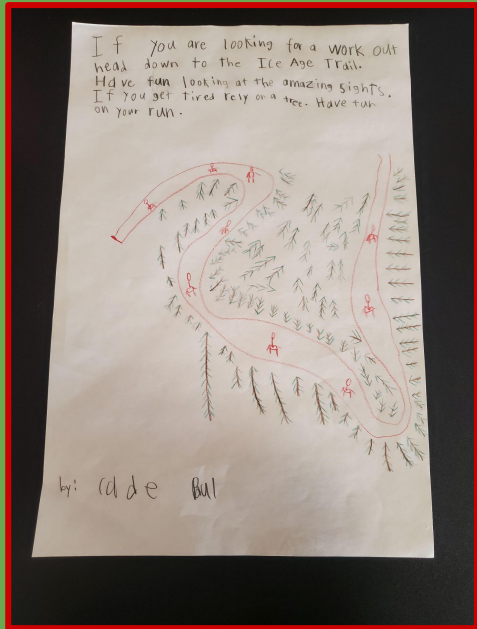 If you are looking for a work out
head down to the Ice Age Trail.
Have fun looking at the amazing sights.
If you get tired rely on a tree. Have fun
on your run.
by: Cade Bul